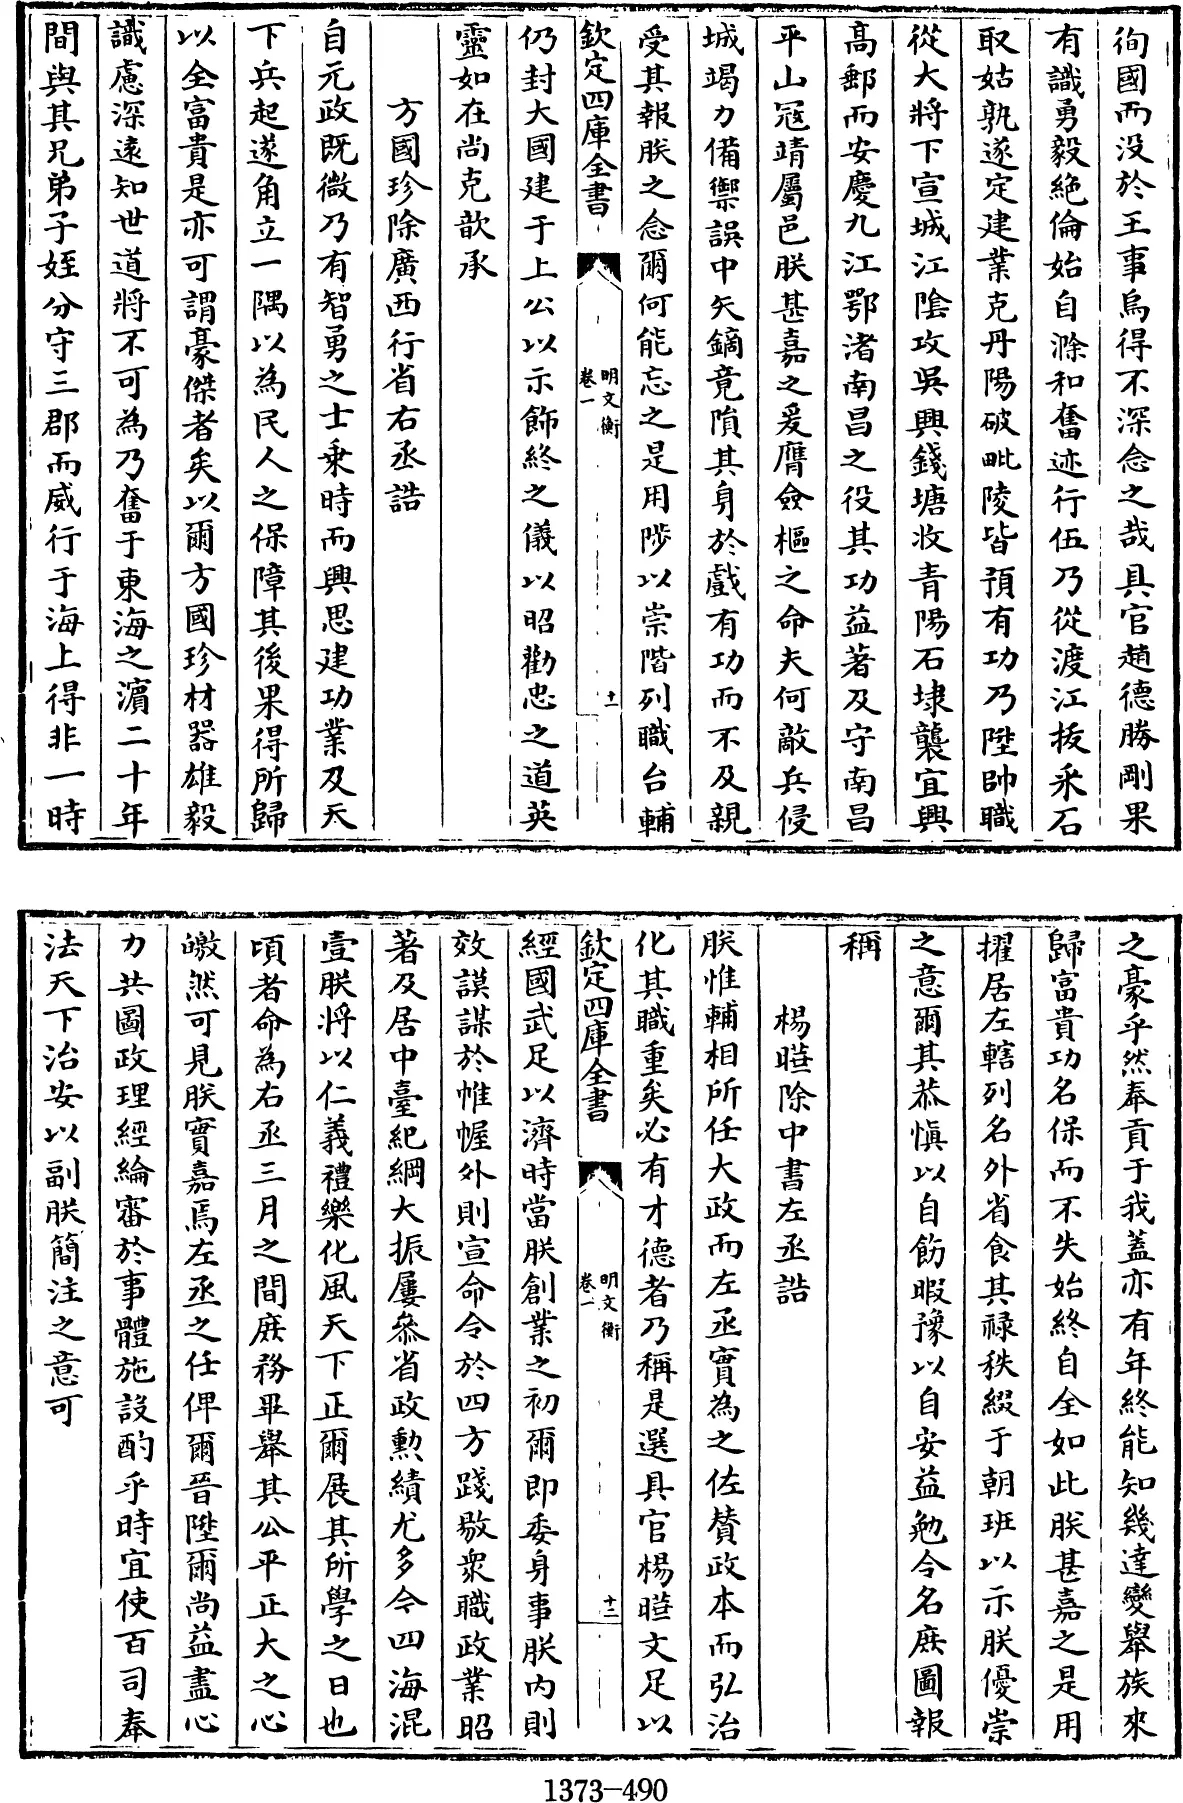 徇國而没於王事烏得不深念之哉具官趙德勝剛果
有識勇毅絶倫始自滁和奮迹行伍乃從渡江抜采石
取姑孰遂定建業克丹陽破毗陵皆預有功乃陞帥職
從大將下宣城江陰攻吳興錢塘收青陽石埭襲宜興
髙郵而安慶九江鄂渚南昌之役其功益著及守南昌
平山冦靖屬邑朕甚嘉之爰膺僉樞之命夫何敵兵侵
城竭力備禦誤中矢鏑竟隕其身於戲有功而不及親
受其報朕之念爾何能忘之是用陟以崇階列職台輔
欽定四庫全書
明文衡
卷一
十一
仍封大國建于上公以示飾終之儀以昭勸忠之道英
靈如在尚克歆承
方國珍除廣西行省右丞誥
自元政既微乃有智勇之士乗時而興思建功業及天
下兵起遂角立一隅以為民人之保障其後果得所歸
以全富貴是亦可謂豪傑者矣以爾方國珍材器雄毅
識慮深逺知世道將不可為乃奮于東海之濵二十年
間與其兄弟子姪分守三郡而威行于海上得非一時
之豪乎然奉貢于我蓋亦有年終能知幾達變舉族來
歸富貴功名保而不失始終自全如此朕甚嘉之是用
擢居左轄列名外省食其禄秩綴于朝班以示朕優崇
之意爾其恭慎以自飭暇豫以自安益勉令名庶圖報
稱
楊暀除中書左丞誥
朕惟輔相所任大政而左丞實為之佐賛政本而弘治
化其職重矣必有才德者乃稱是選具官楊暀文足以
欽定四庫全書
明文衡
卷一
十二
經國武足以濟時當朕創業之初爾即委身事朕内則
效謨謀於帷幄外則宣命令於四方踐敭衆職政業昭
著及居中臺紀綱大振屢叅省政勲績尤多今四海混
壹朕將以仁義禮樂化風天下正爾展其所學之日也
頃者命為右丞三月之間庶務畢舉其公平正大之心
皦然可見朕實嘉焉左丞之任俾爾晉陞爾尚益盡心
力共圖政理經綸審於事體施設酌乎時宜使百司奉
法天下治安以副朕簡注之意可
1373-490